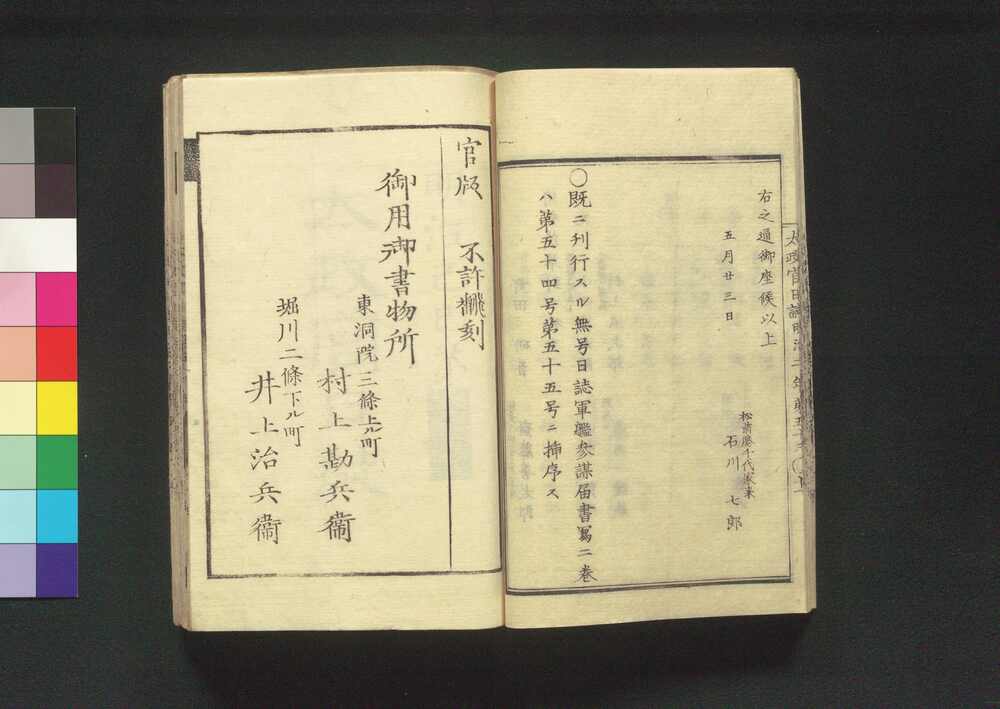 右之通御座候以上
五月廿三日
松前勝千代家来
石川 七郎
○既ニ刊行スル無号日誌軍艦参謀届書写二巻
ハ第五十四号第五十五号ニ挿序ス
太政官日誌明治二年
官版 不許翻刻
御用御書物所
東洞院三條上ル町
村上勘兵衞
堀川二條下ル町
井上治兵衞